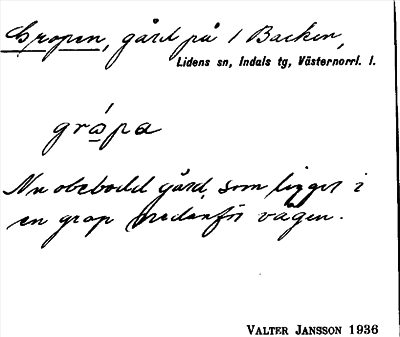 Gropen, gård på 1 Backen,
Lidens sn, Indals tg, Västernorrl. l.
grópa
Nu obebodd gård, som ligger i
en grop nedanför vägen.
VALTER JANSSON 1936